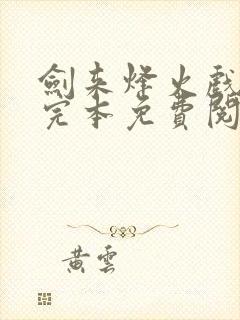 劍来烽火戲
完本免費閱
黄雲